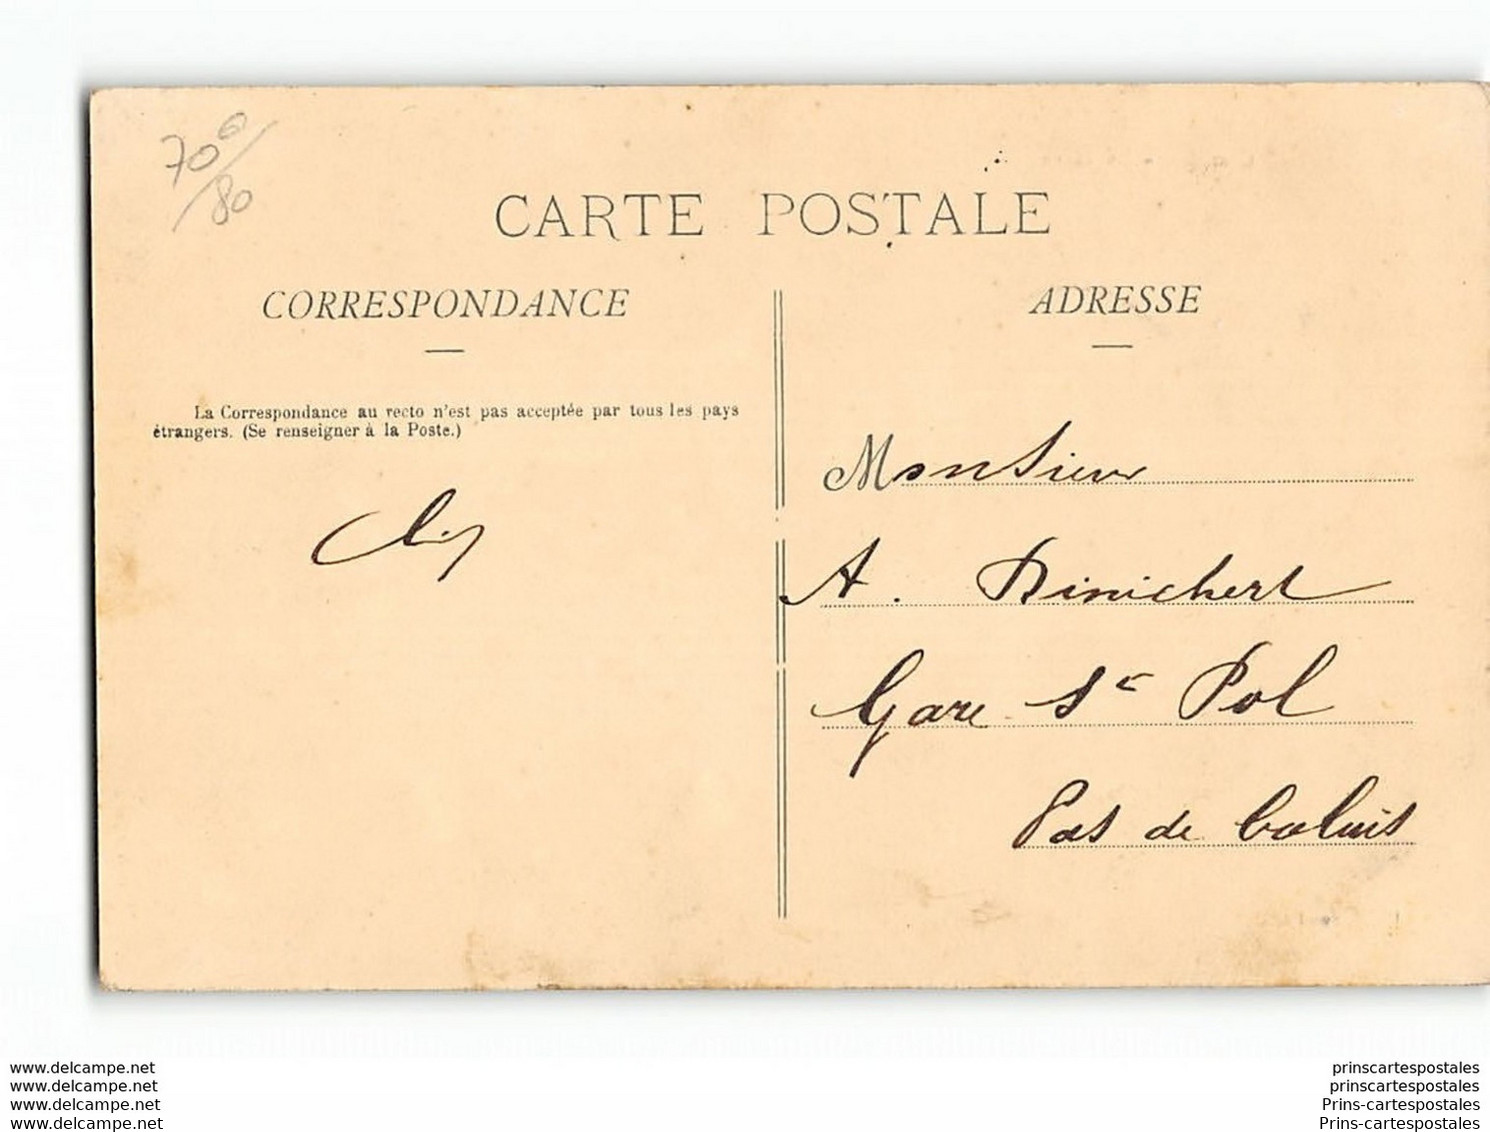 70 6
80
CARTE POSTALE
CORRESPONDANCE
La Correspondance au recto n'est pas acceptée par tous les pays
étrangers. (Se renseigner à la Poste.)
ADRESSE
Monsieur
A.
Gare St Pol
Pas de Calais
www.delcampe.net
www.delcampe.net
www.delcampe.net
www.delcampe.net
prinscartespostales
prinscartespostales
Prins-cartespostales
Prins-cartespostales